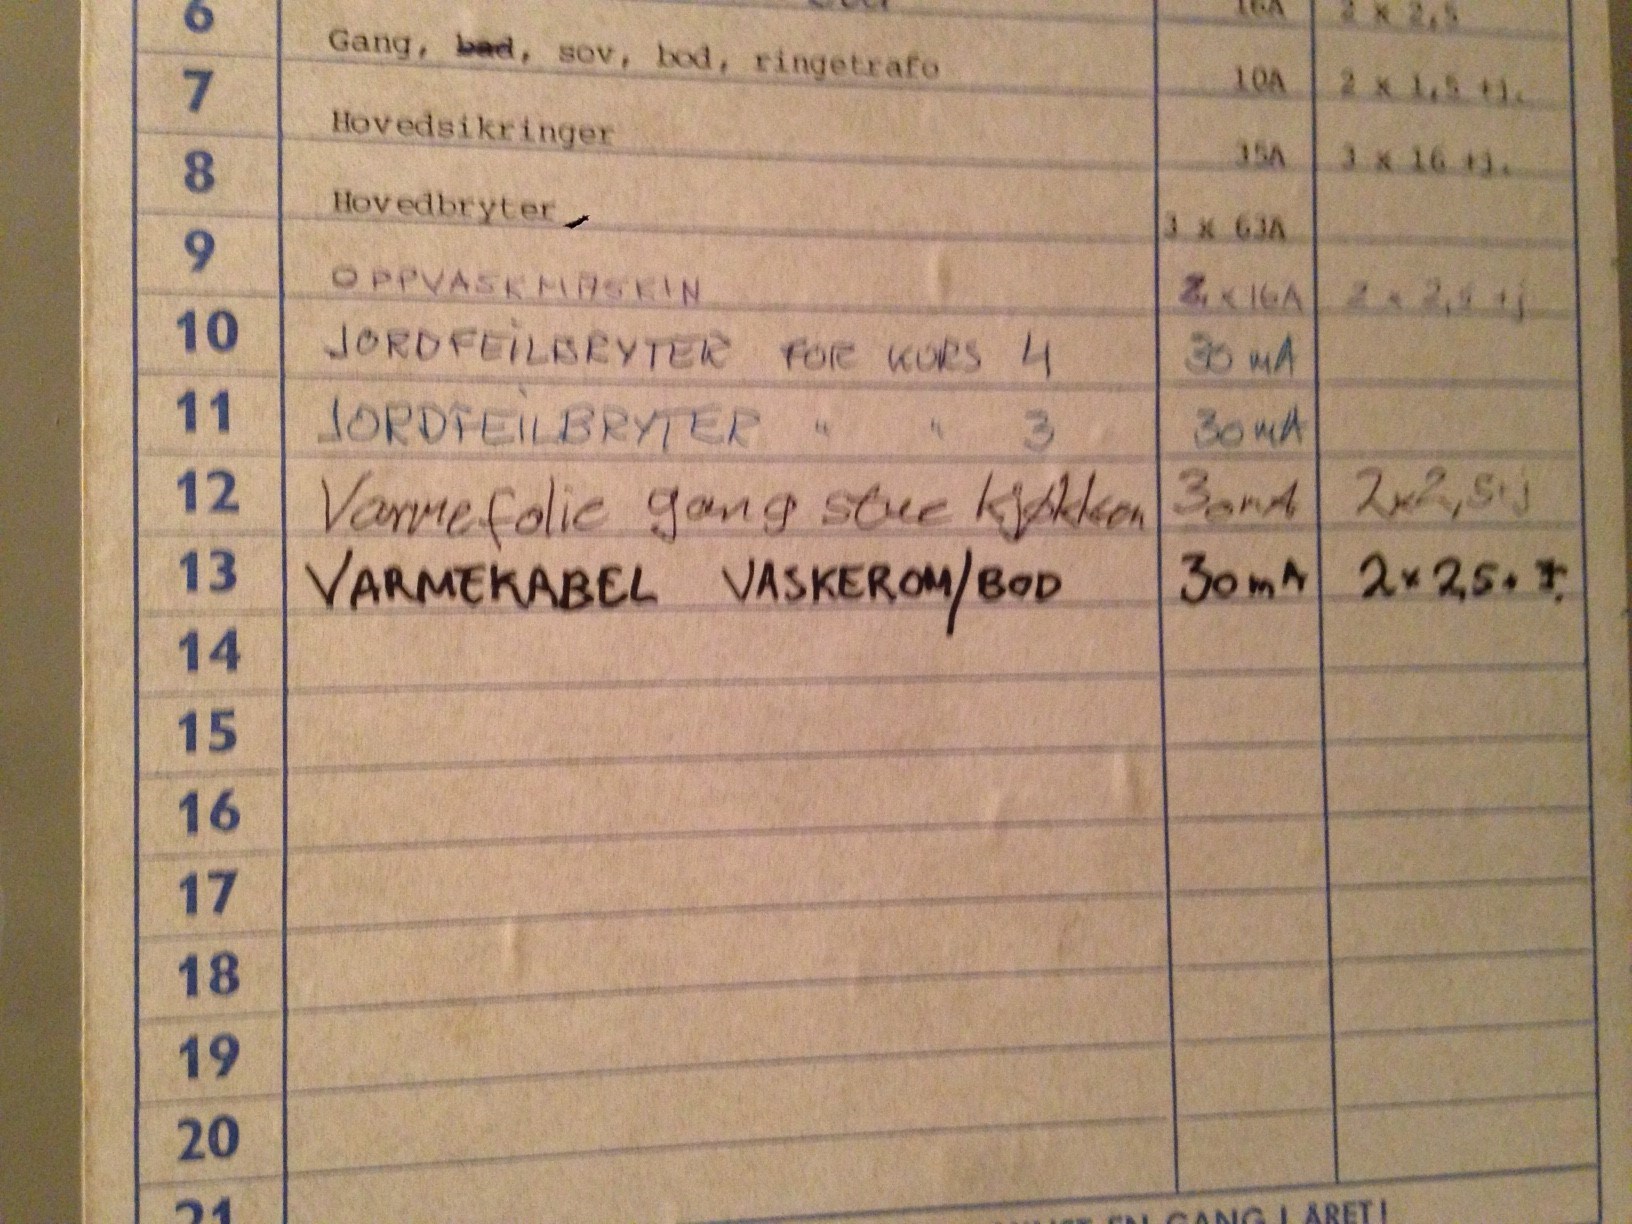 6 16A 2 x 2,5
Gang, bad, sov, bod, ringetrafo 10A 2 x 1,5 +j.
7
Hovedsikringer 35A 3 x 16 +j.
8
Hovedbryter 3 x 63A
9
OPPVASKMASKIN 2 x 16A 2 x 2,5 +j
10 JORDFEILBRYTER FOR KURS 4 30 mA
11 JORDFEILBRYTER " " 3 30mA
12 Varmefolie gang stue kjøkken 30mA 2x2,5+j
13 VARMEKABEL VASKEROM/BOD 30mA 2x2,5+J.
14
15
16
17
18
19
20
21 EN GANG I ÅRET!